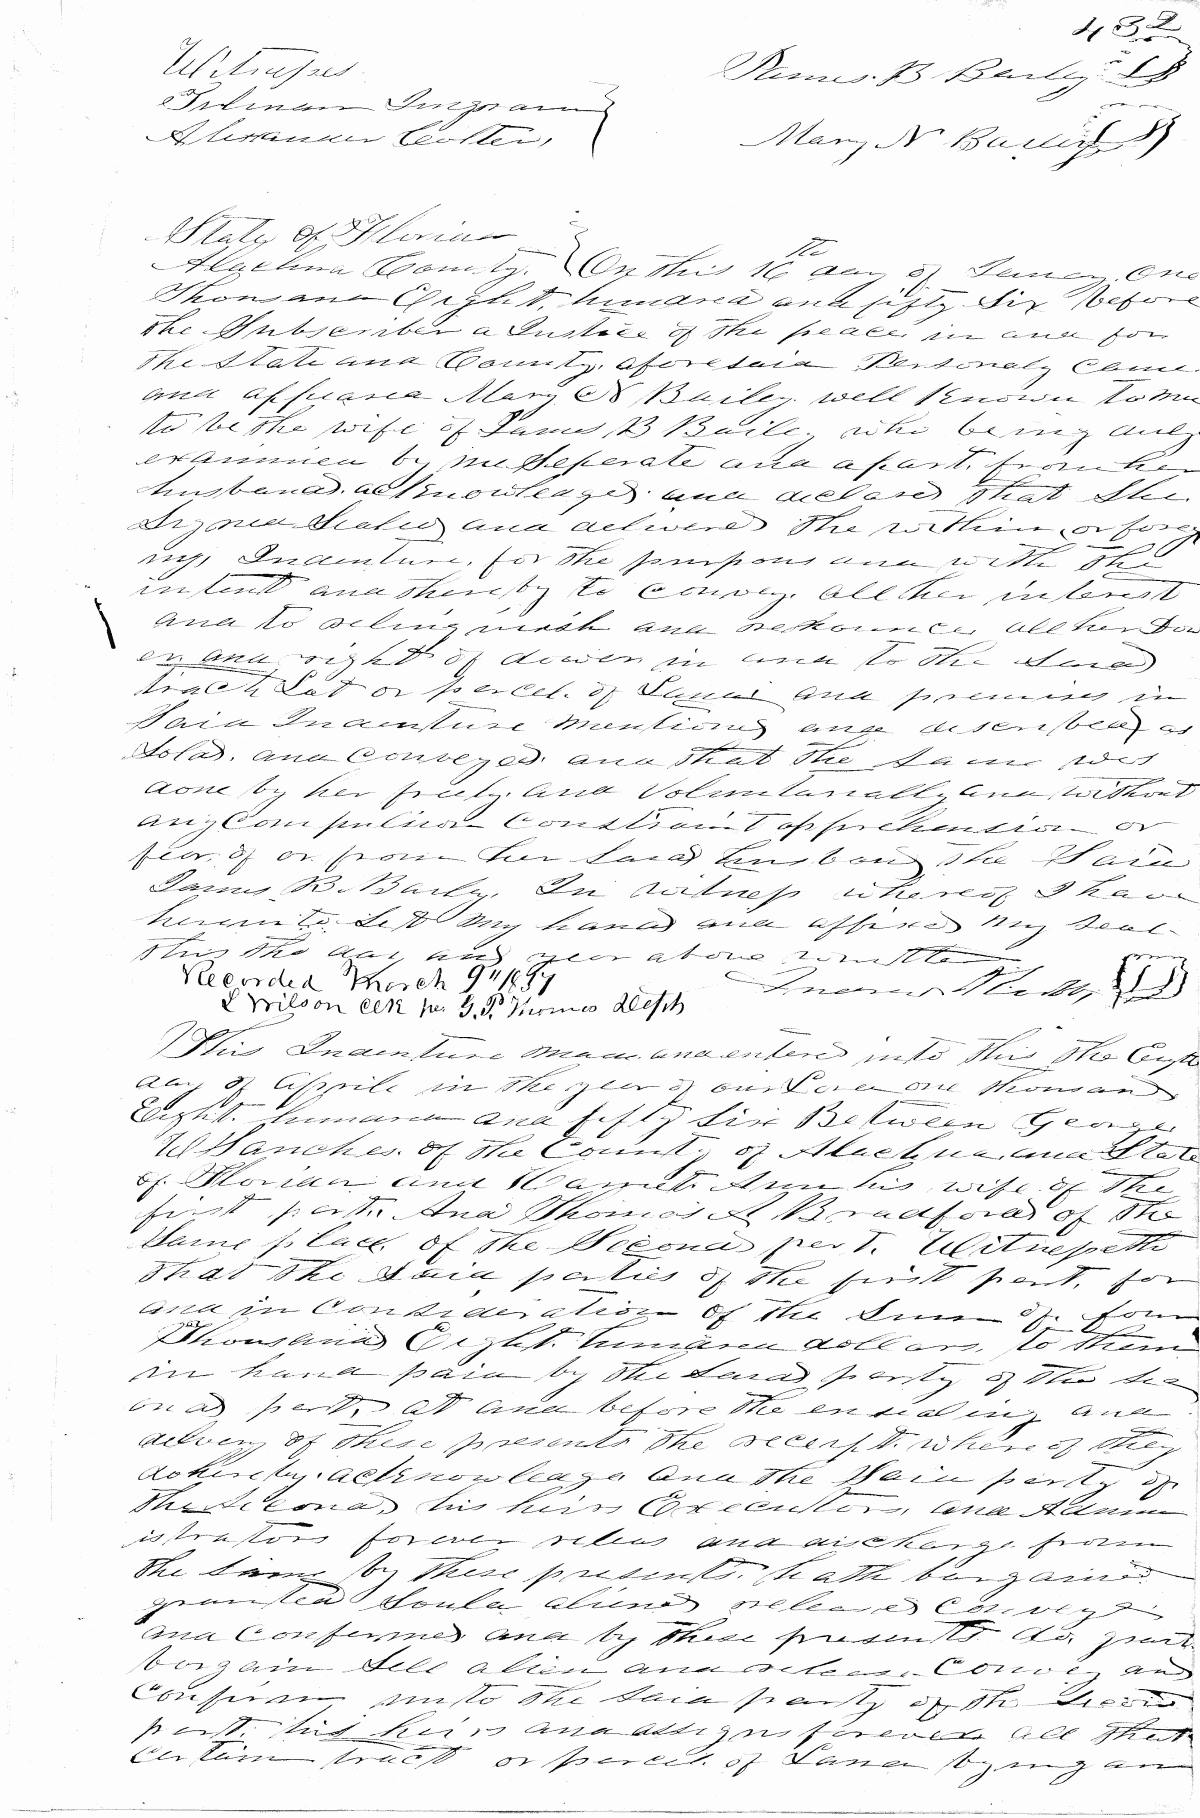 432
Witnesses James. B Baily LS
Tilman Ingram
Alexander Colter, Mary N Bailey LS
State of Florida
Alachua County. On this 16th day of Janury. One
Thousand Eight. hundred and fifty Six before
the Subscriber a Justice of the peace in and for
the State and County. aforesaid Personaly came.
and appeared Mary N Bailey. well Known to me
to be the wife of James, B Bailey who being duly
examined by me Seperate and apart. from her
husband. acknowledged. and declared that She.
Signed Sealed and delivered the within or foreg
ing, Indenture. for the purpous and with the
intent and thereby to convey. all her interest
and to relinquish and renounce, all her Dow
er and right of dower in and to the Said
tract Lot or parcel. of Land and premises in
Said Indenture mentioned and described as
Sold. and Conveyed. and that the Same was
done by her freely. and Voluntarially and without
any Compulsion Constraint apprehension or
fear. of or from her Said husband the Said
James. B. Baily. In witness whereof I have
hereunto. Set my hand and affixed my Seal-
this the day and year above written
Recorded March 9" 1857
L Wilson Clk per G. P. Thomas Depty LS
This Indenture made. and entered into this the Eight
day of Aprile in the year of our Lord one thousand
Eight. hundred and fifty Six Between George
W Sanches. of the County of Alachua. and State
of. Florida and Harriet. Ann his wife. of the
first part. And Thomas A Bradford of the
Same place. of the Second part. Witnesseth
that the Said parties of the first part, for
and in Consideration of the Sum of. four
Thousand Eight. hundred dollars. to them
in hand paid by the Said party of the Sec
ond part, at and before the ensealing and
delivery of these presents the receipt. where of they
do hereby. acknowledge and the Said party of
the Second his heirs Executors, and Admin
istrators forever releas and discharge. from
the Same by these presents. hath bargained
granted Sould aliened released Conveyed
and Confermed and by these presents do. grant
bargain Sell alien and release. Convey and
Confirm unto the Said party of the Second
part. his heirs and assigns forever all that
certain tract or parcel. of Land lying and